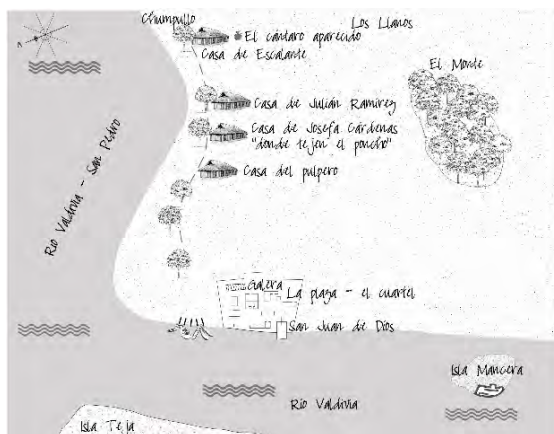 Chumpullo
Los Llanos
El cántaro aparecido
Casa de Escalante
El Monte
Casa de Julián Ramirez
Casa de Josefa Cárdenas
"donde tejen el poncho"
Casa del pulpero
Río Valdivia - San Pedro
Galera
La plaza - el cuartel
San Juan de Dios
Isla Mancera
Río Valdivia
Isla Teja